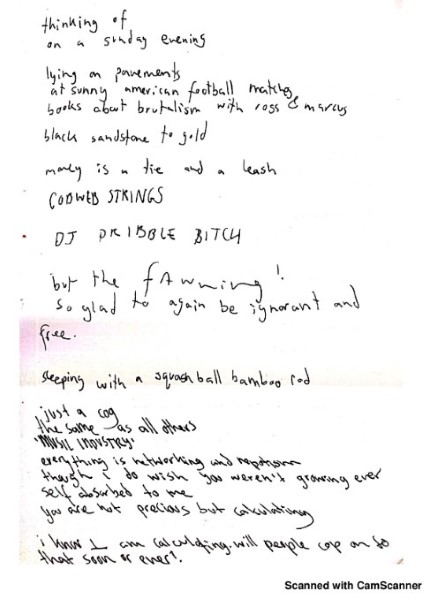 thinking of
on a sunday evening
lying on pavements
at sunny american football matches
books about brutalism with ross & marcus
black sandstone to gold
money is a tie and a leash
COBWEB STRINGS
DJ DRIBBLE BITCH
but the fAwning!
so glad to again be ignorant and
free.
sleeping with a squash ball bamboo rod
just a cog
the same as all others
"MUSIC INDUSTRY"
everything is networking and nepotism
though i do wish you weren't growing ever
self absorbed to me
you are not precious but calculating
i know I am calculating. will people cop on to
that soon or ever?
Scanned with CamScanner